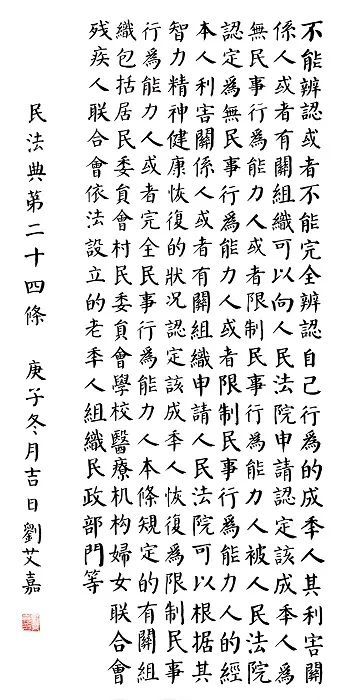 不能辨認或者不能完全辨認自己行為的成秊人其利害關
係人或者有關組織可以向人民法院申請認定該成秊人為
無民事行為能力人或者限制民事行為能力人被人民法院
認定為無民事行為能力人或者限制民事行為能力人的經
本人利害關係人或者有關組織申請人民法院可以根据其
智力精神健康恢復的狀况認定該成秊人恢復為限制民事
行為能力人或者完全民事行為能力人本條規定的有關組
織包括居民委員會村民委員會學校醫療机构婦女联合會
残疾人联合會依法設立的老秊人組織民政部門等
民法典第二十四條 庚子冬月吉日劉艾嘉